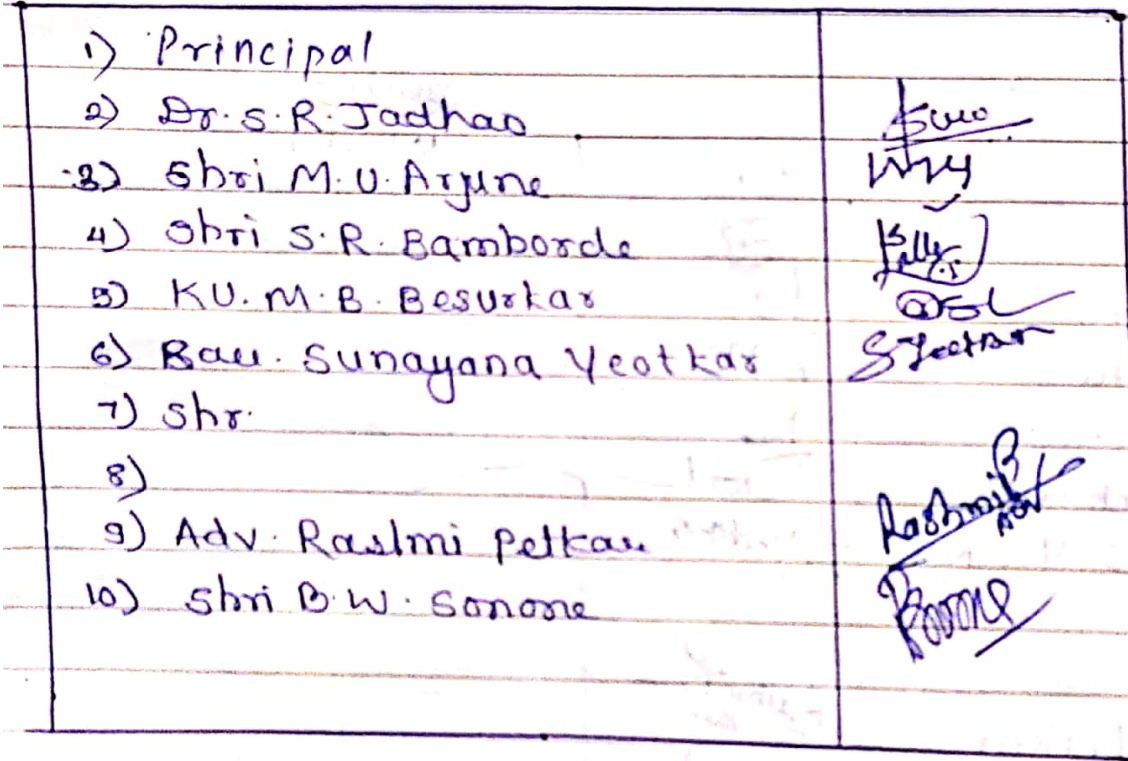 1) Principal
2) Dr. S. R. Jadhao
3) Shri M. U. Arjune
4) Shri S. R. Bamborde
5) KU. M. B. Besurkar
6) Sau. Sunayana Yeotkar
7) Shr.
8)
9) Adv. Rashmi Petkar Rashmi
10) Shri B. W. Sonone